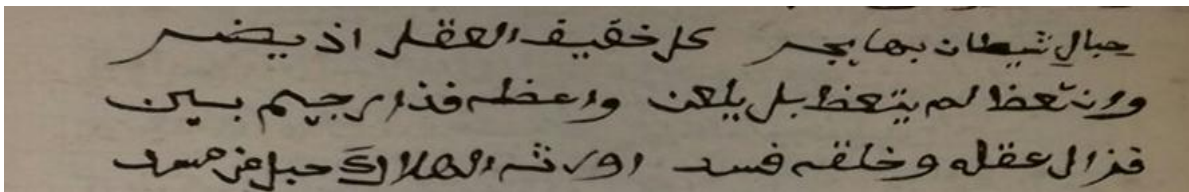 حبال شيطان بها يجر كل خفيف العقل اذ يضر
وان تعظ لم يتعظ بل يلعن واعظه فذا رجيم بين
فزال عقله وخلقه فسد اورثه الهلاك حبل من مسد